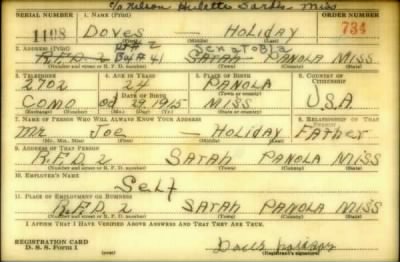 c/o Nelson Hulette Sardis Miss
SERIAL NUMBER 1. NAME (Print) ORDER NUMBER
1108 DOVES — HOLIDAY 734
(First) (Middle) (Last)
2. ADDRESS (Print) Rt # 2 Senatobia
R.F.D. 2 Box 41 SATAH PANOLA MISS
(Number and street or R. F. D. number) (Town) (County) (State)
3. TELEPHONE 4. AGE IN YEARS 5. PLACE OF BIRTH 6. COUNTRY OF CITIZENSHIP
2702 24 PANOLA
COMO DATE OF BIRTH Oct 29, 1915 MISS U.S.A
(Exchange) (Number) (Mo.) (Day) (Yr.) (State or country)
7. NAME OF PERSON WHO WILL ALWAYS KNOW YOUR ADDRESS 8. RELATIONSHIP OF THAT PERSON
MR JOE — HOLIDAY Father
(Mr., Mrs., Miss) (First) (Middle) (Last)
9. ADDRESS OF THAT PERSON
R.F.D. 2 SATAH PANOLA MISS
(Number and street or R. F. D. number) (Town) (County) (State)
10. EMPLOYER'S NAME
Self
11. PLACE OF EMPLOYMENT OR BUSINESS
R.F.D. 2 SATAH PANOLA MISS
(Number and street or R. F. D. number) (Town) (County) (State)
I AFFIRM THAT I HAVE VERIFIED ABOVE ANSWERS AND THAT THEY ARE TRUE.
REGISTRATION CARD
D. S. S. Form 1 (Registrant's signature)